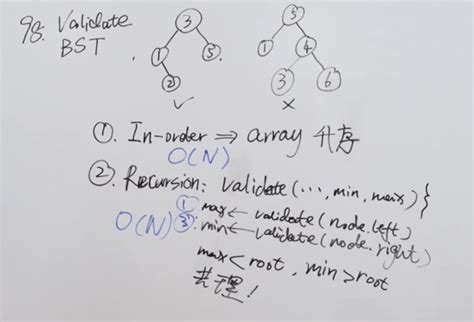 98. Validate
BST
3
1 5
2
✓
5
1 4
3 6
×
①. In-order ⇒ array 升序
O(N)
②. Recursion: validate(..., min, max) }
① max ← validate(node.left)
O(N) ③: min ← validate(node.right)
max < root, min > root
!